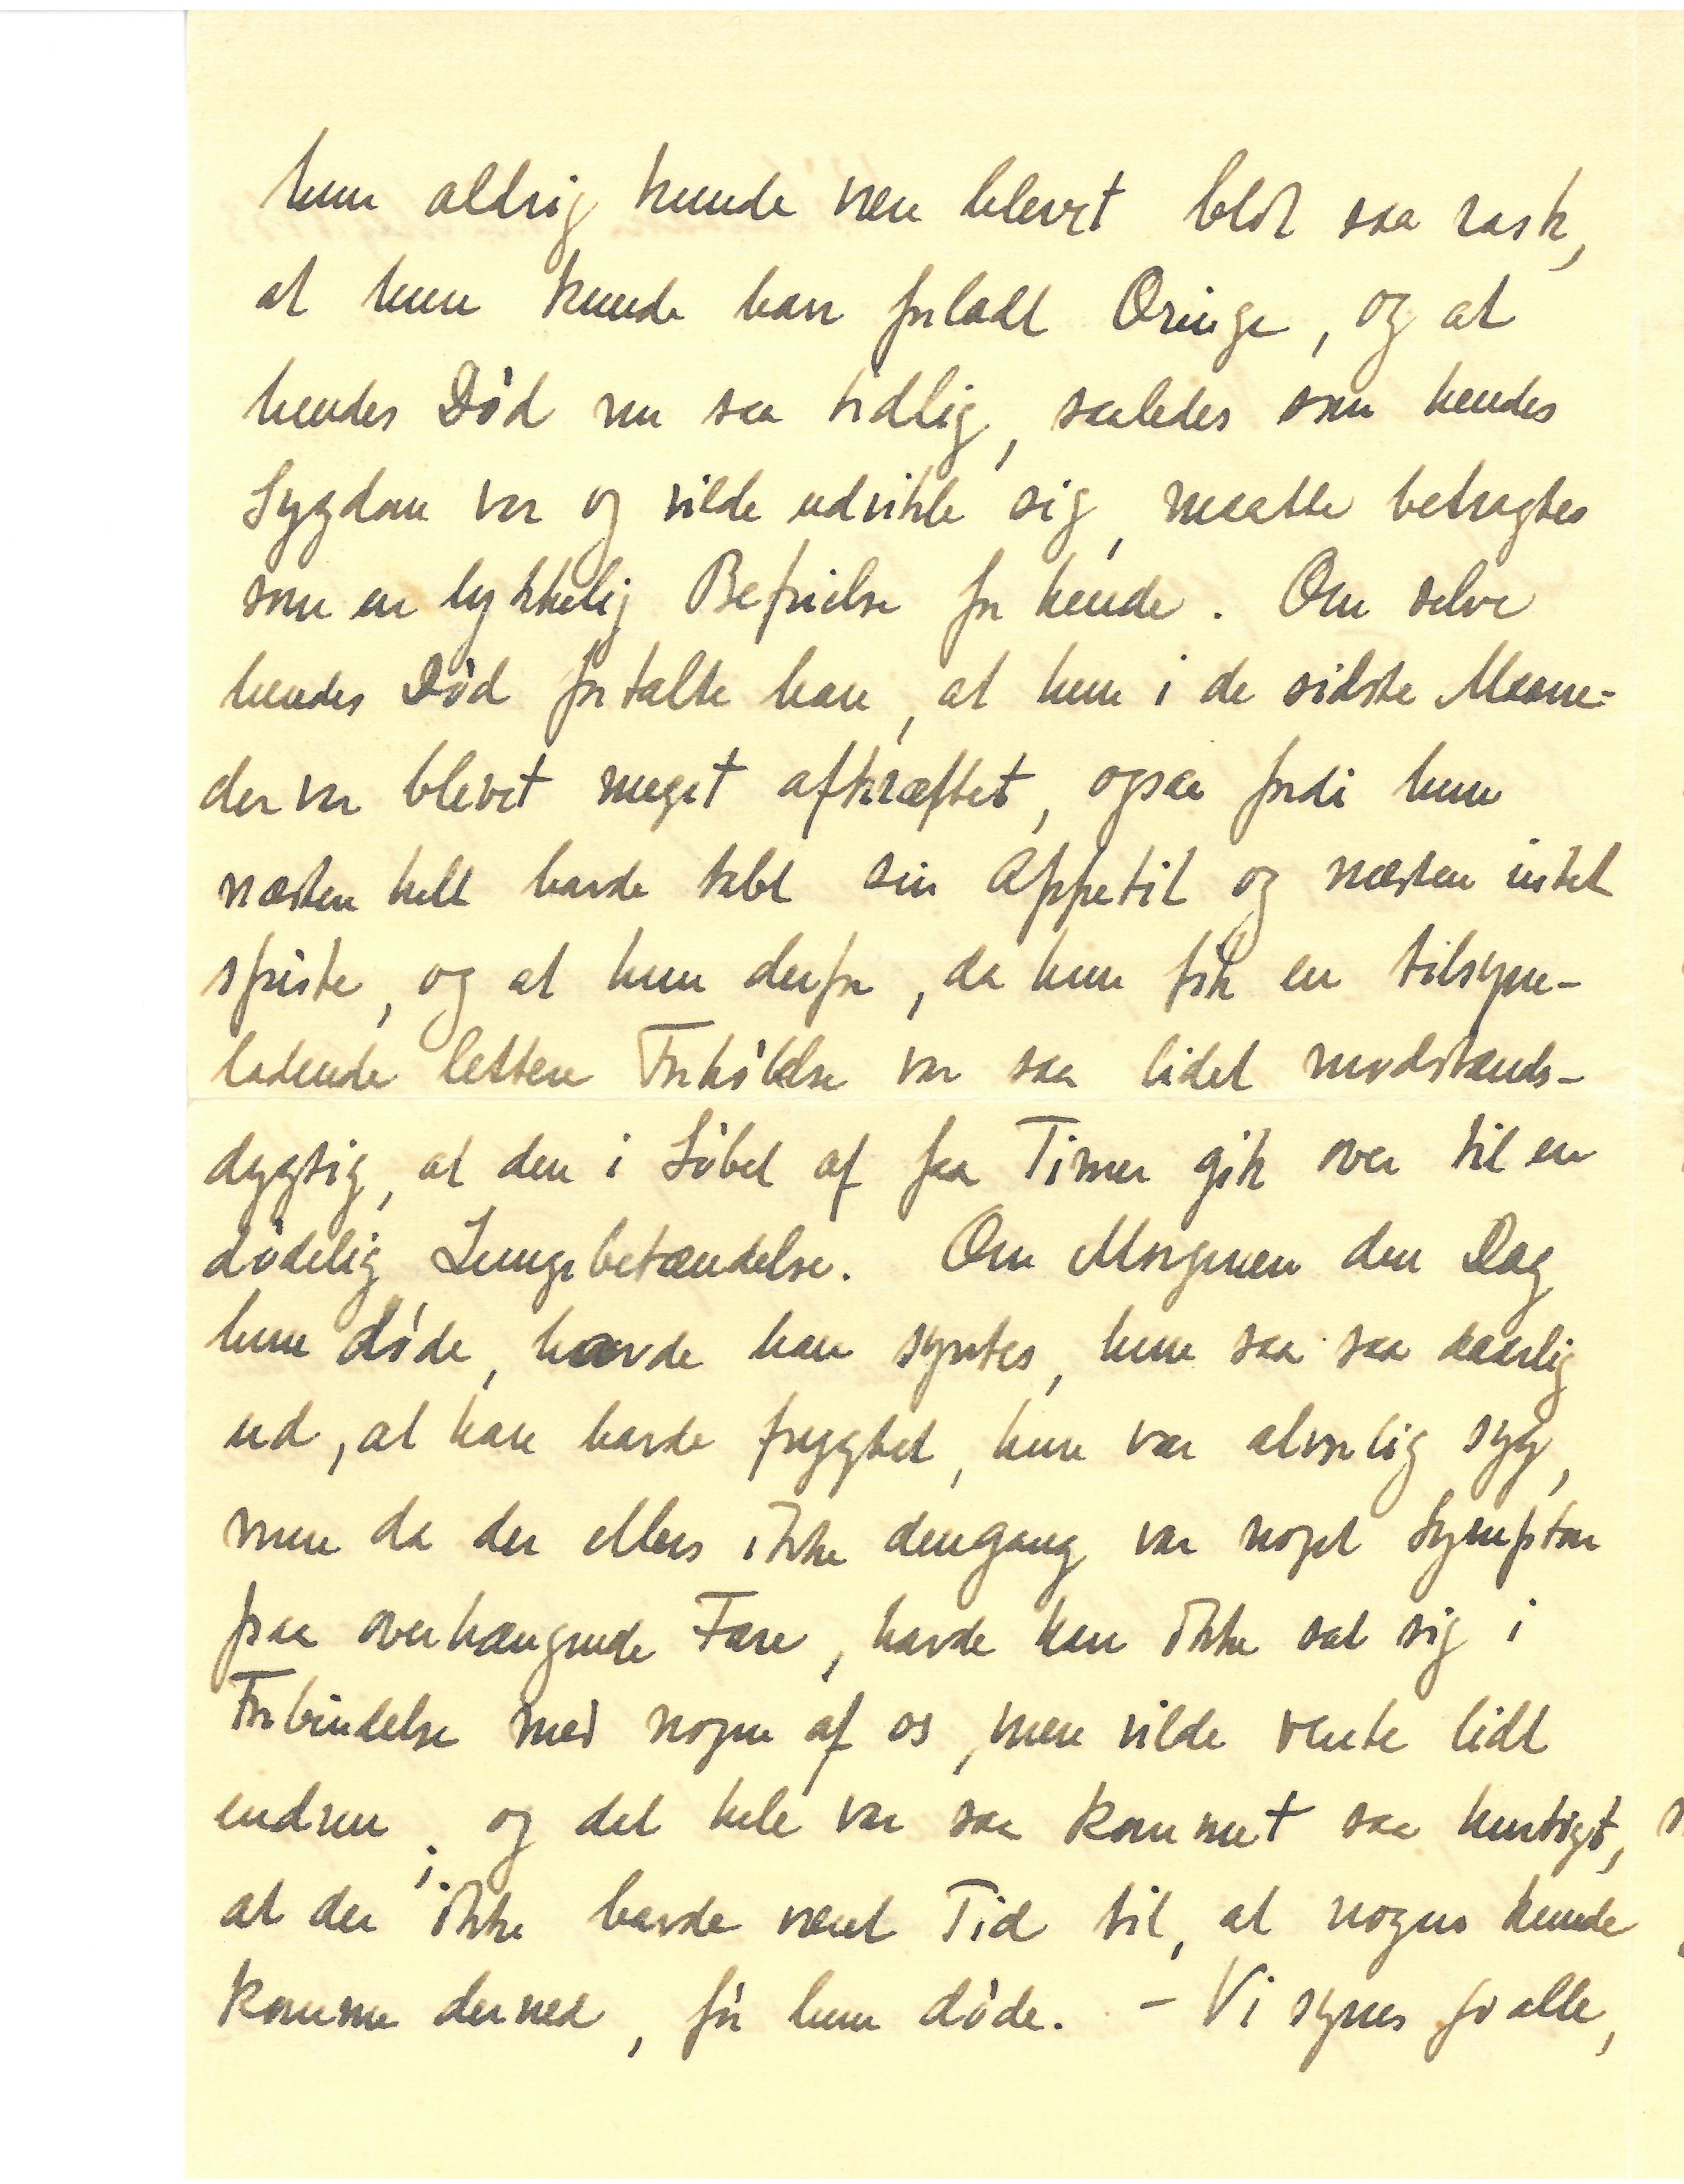 hun aldrig kunde være blevet blot saa rask,
at hun kunde have forladt Oringe, og at
hendes Død nu saa tidlig, saaledes som hendes
Sygdom var og vilde udvikle sig, maatte betragtes
som en lykkelig Befrielse for hende. Om selve
hendes Død fortalte han, at hun i de sidste Maane-
der var blevet meget afkræftet, ogsaa fordi hun
næsten helt havde tabt sin Appetit og næsten intet
spiste, og at hun derfor, da hun fik en tilsyne-
ladende lettere Forkølelse var saa lidet modstands-
dygtig, at den i Løbet af faa Timer gik over til en
dødelig Lungebetændelse. Om Morgenen den Dag
hun døde, havde han syntes, hun saa saa daarlig
ud, at han havde frygtet, hun var alvorlig syg,
men da der ellers ikke dengang var noget Symptom
paa overhængende Fare, havde han ikke sat sig i
Forbindelse med nogen af os, men vilde vente lidt
endnu; og det hele var saa kommet saa hurtigt,
at der ikke havde været Tid til, at nogen kunde
komme derned, før hun døde. – Vi synes jo alle,